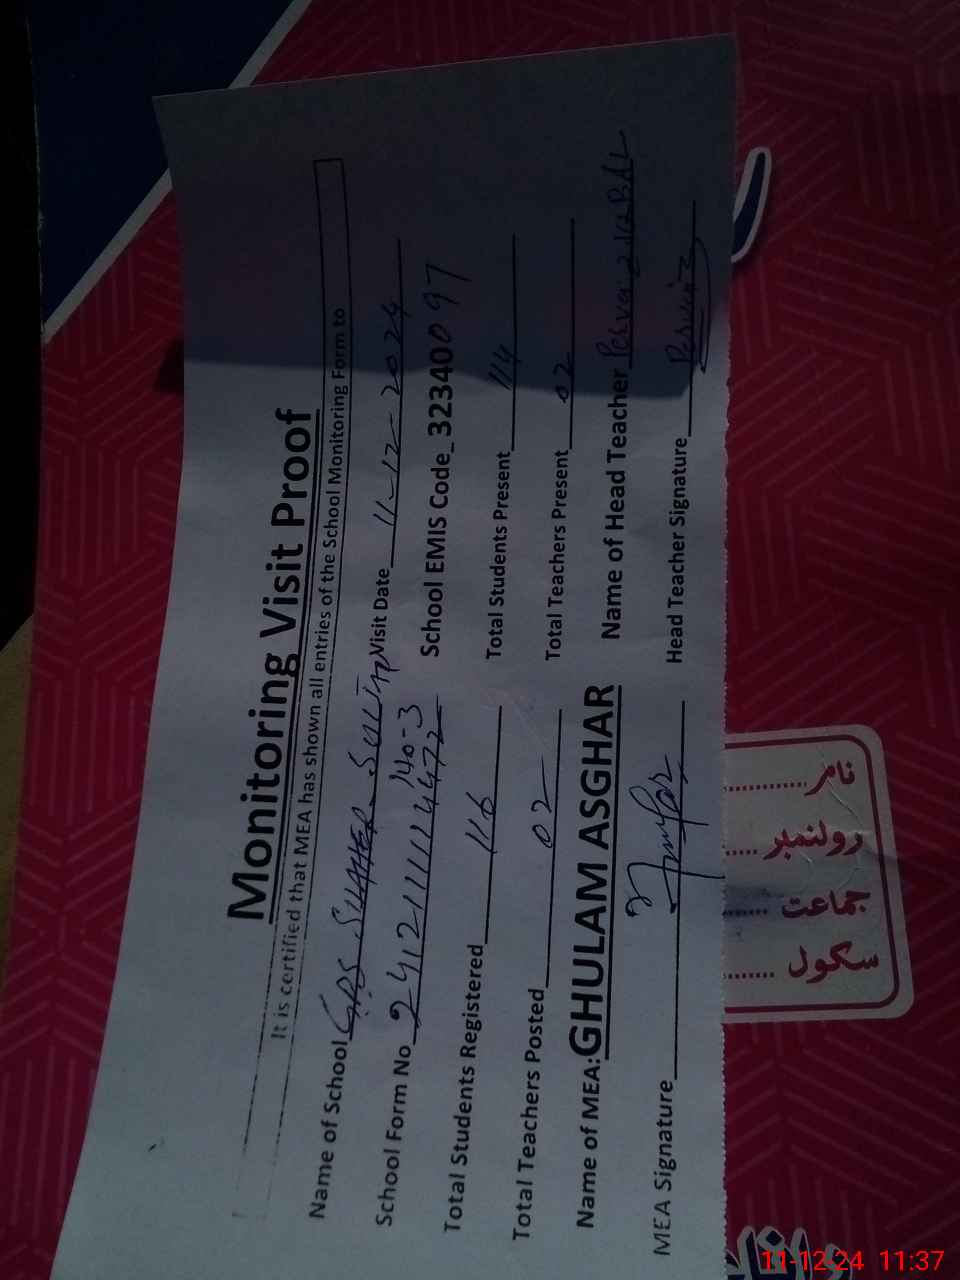 Monitoring Visit Proof
It is certified that MEA has shown all entries of the School Monitoring Form to
Name of School GPS Visit Date 11-12-2024
School Form No School EMIS Code_ 32340097
Total Students Registered 116 Total Students Present 114
Total Teachers Posted 02 Total Teachers Present 02
Name of MEA: GHULAM ASGHAR Name of Head Teacher
MEA Signature Head Teacher Signature
نام
رولنمبر
جماعت
سکول
11-12-24 11:37